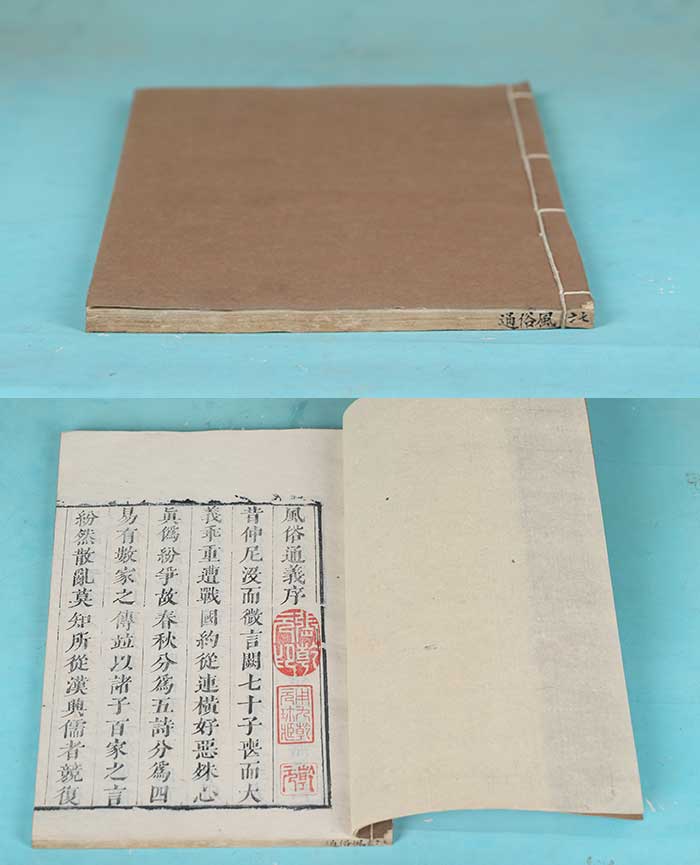 風俗通
風俗通義序
昔仲尼沒而微言闕七十子喪而大
義乖重遭戰國約從連橫好惡殊心
眞僞紛爭故春秋分爲五詩分爲四
易有數家之傳竝以諸子百家之言
紛然散亂莫知所從漢興儒者競復
風俗通